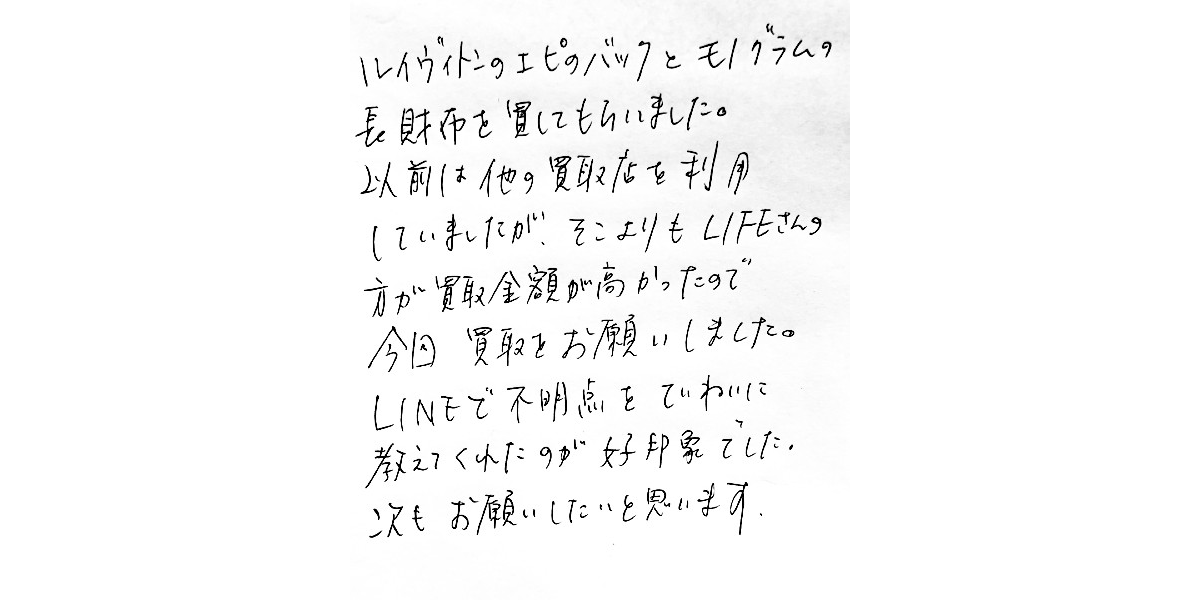 ルイヴィトンのエピのバックとモノグラムの
長財布を買してもらいました。
以前は他の買取店を利用
していましたが、そこよりもLIFEさんの
方が買取金額が高かったので
今回 買取をお願いしました。
LINEで不明点をていねいに
教えてくれたのが好印象でした。
次もお願いしたいと思います.